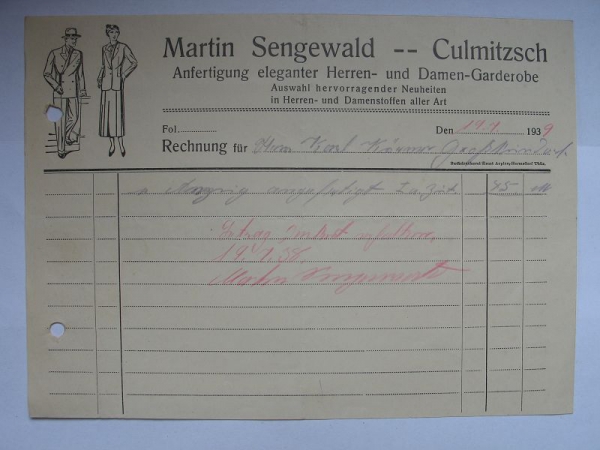 Martin Sengewald -- Culmitzsch
Anfertigung eleganter Herren- und Damen-Garderobe
Auswahl hervorragender Neuheiten
in Herren- und Damenstoffen aller Art
Fol.
Den 19.1. 1939
Rechnung für Herrn Karl
angefertigt 45 M
Betrag dankend erhalten
Martin Sengewald